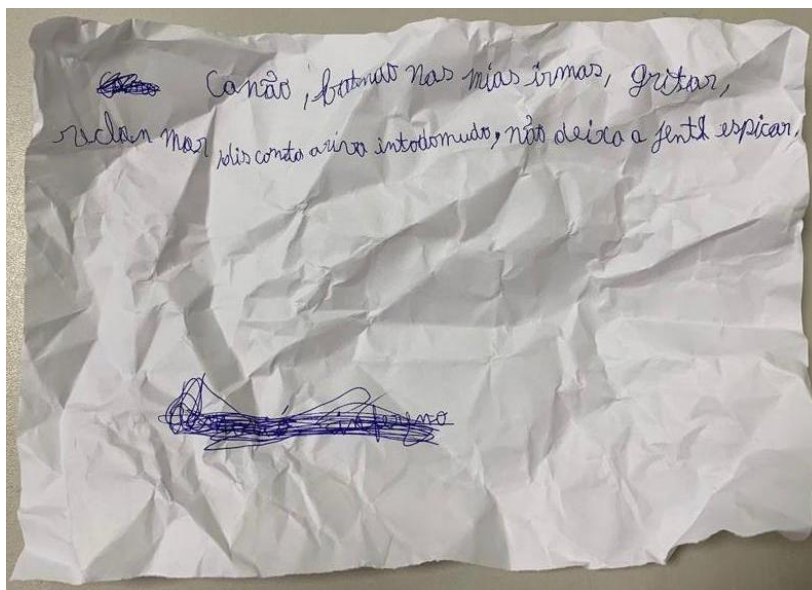 Canão, batndo nas mias irmas, gritar,
reclan mar, disconta ariva intodomudo, não deixa a jente espicar.
inferno